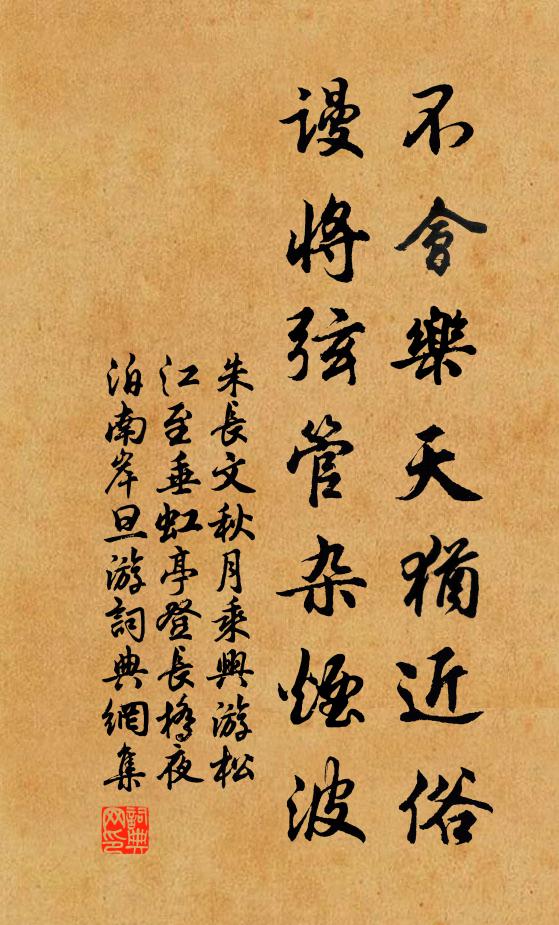 不會樂天猶近俗
謾將弦管杂煙波
朱長文秋月乘興游松
江至垂虹亭登長橋夜
泊南岸旦游詞典網集
詞典网印